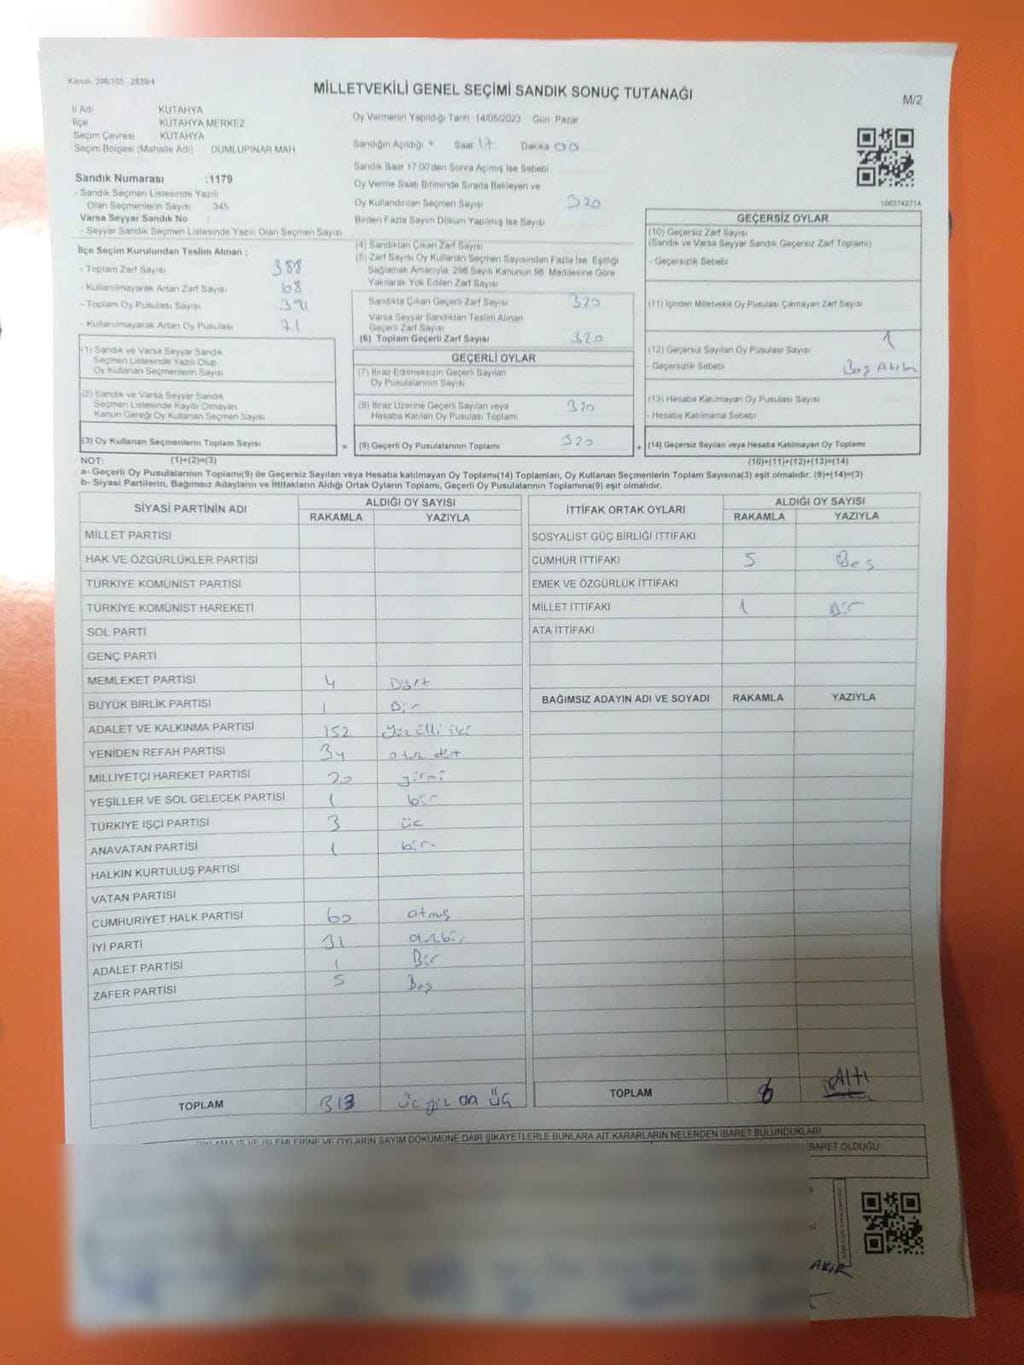 Kanun: 298/105 2839/4
MİLLETVEKİLİ GENEL SEÇİMİ SANDIK SONUÇ TUTANAĞI
M/2
İl Adı KÜTAHYA
İlçe KÜTAHYA MERKEZ
Seçim Çevresi KÜTAHYA
Seçim Bölgesi (Mahalle Adı) DUMLUPINAR MAH
Sandık Numarası :1179
- Sandık Seçmen Listesinde Yazılı
Olan Seçmenlerin Sayısı 345
Varsa Seyyar Sandık No
- Seyyar Sandık Seçmen Listesinde Yazılı Olan Seçmen Sayısı
Oy Vermenin Yapıldığı Tarih 14/05/2023 Gün Pazar
Sandığın Açıldığı Saat 17 Dakika 00
Sandık Saat 17.00'den Sonra Açılmış İse Sebebi
Oy Verme Saati Bitiminde Sırada Bekleyen ve
Oy Kullandırılan Seçmen Sayısı 320
Birden Fazla Sayım Döküm Yapılmış İse Sayısı
1003742714
İlçe Seçim Kurulundan Teslim Alınan :
- Toplam Zarf Sayısı 388
- Kullanılmayarak Artan Zarf Sayısı 68
- Toplam Oy Pusulası Sayısı 391
- Kullanılmayarak Artan Oy Pusulası 71
(1) Sandık ve Varsa Seyyar Sandık
Seçmen Listesinde Yazılı Olup
Oy Kullanan Seçmenlerin Sayısı
(2) Sandık ve Varsa Seyyar Sandık
Seçmen Listesinde Kayıtlı Olmayan
Kanun Gereği Oy Kullanan Seçmen Sayısı
(3) Oy Kullanan Seçmenlerin Toplam Sayısı
(4) Sandıktan Çıkan Zarf Sayısı
(5) Zarf Sayısı Oy Kullanan Seçmen Sayısından Fazla İse, Eşitliği
Sağlamak Amacıyla, 298 Sayılı Kanunun 98. Maddesine Göre
Yakılarak Yok Edilen Zarf Sayısı
Sandıkta Çıkan Geçerli Zarf Sayısı 320
Varsa Seyyar Sandıktan Teslim Alınan
Geçerli Zarf Sayısı
(6) Toplam Geçerli Zarf Sayısı 320
GEÇERLİ OYLAR
(7) İtiraz Edilmeksizin Geçerli Sayılan
Oy Pusulalarının Sayısı
(8) İtiraz Üzerine Geçerli Sayılan veya
Hesaba Katılan Oy Pusulası Toplamı 320
= (9) Geçerli Oy Pusulalarının Toplamı 320
GEÇERSİZ OYLAR
(10) Geçersiz Zarf Sayısı
(Sandık ve Varsa Seyyar Sandık Geçersiz Zarf Toplamı)
- Geçersizlik Sebebi
(11) İçinden Milletvekili Oy Pusulası Çıkmayan Zarf Sayısı
(12) Geçersiz Sayılan Oy Pusulası Sayısı 1
- Geçersizlik Sebebi Boş
(13) Hesaba Katılmayan Oy Pusulası Sayısı
- Hesaba Katılmama Sebebi
+ (14) Geçersiz Sayılan veya Hesaba Katılmayan Oy Toplamı
NOT: (1)+(2)=(3) (10)+(11)+(12)+(13)=(14)
a- Geçerli Oy Pusulalarının Toplamı(9) ile Geçersiz Sayılan veya Hesaba katılmayan Oy Toplamı(14) Toplamları, Oy Kullanan Seçmenlerin Toplam Sayısına(3) eşit olmalıdır. (9)+(14)=(3)
b- Siyasi Partilerin, Bağımsız Adayların ve İttifakların Aldığı Ortak Oyların Toplamı, Geçerli Oy Pusulalarının Toplamına(9) eşit olmalıdır.
SİYASİ PARTİNİN ADI ALDIĞI OY SAYISI
RAKAMLA YAZIYLA
MİLLET PARTİSİ
HAK VE ÖZGÜRLÜKLER PARTİSİ
TÜRKİYE KOMÜNİST PARTİSİ
TÜRKİYE KOMÜNİST HAREKETİ
SOL PARTİ
GENÇ PARTİ
MEMLEKET PARTİSİ 4 Dört
BÜYÜK BİRLİK PARTİSİ 1 Bir
ADALET VE KALKINMA PARTİSİ 152 Yüz elli iki
YENİDEN REFAH PARTİSİ 34 otuz dört
MİLLİYETÇİ HAREKET PARTİSİ 20 yirmi
YEŞİLLER VE SOL GELECEK PARTİSİ 1 bir
TÜRKİYE İŞÇİ PARTİSİ 3 üç
ANAVATAN PARTİSİ 1 bir
HALKIN KURTULUŞ PARTİSİ
VATAN PARTİSİ
CUMHURİYET HALK PARTİSİ 60 atmış
İYİ PARTİ 31 otuzbir
ADALET PARTİSİ 1 Bir
ZAFER PARTİSİ 5 Beş
TOPLAM 313 üç yüz on üç
İTTİFAK ORTAK OYLARI ALDIĞI OY SAYISI
RAKAMLA YAZIYLA
SOSYALİST GÜÇ BİRLİĞİ İTTİFAKI
CUMHUR İTTİFAKI 5 Beş
EMEK VE ÖZGÜRLÜK İTTİFAKI
MİLLET İTTİFAKI 1 Bir
ATA İTTİFAKI
BAĞIMSIZ ADAYIN ADI VE SOYADI RAKAMLA YAZIYLA
TOPLAM 6 Altı
OYLAMA İŞ VE İŞLEMLERİNE VE OYLARIN SAYIM DÖKÜMÜNE DAİR ŞİKAYETLERLE BUNLARA AİT KARARLARIN NELERDEN İBARET BULUNDUKLARI
BARET OLDUĞU
AKIR